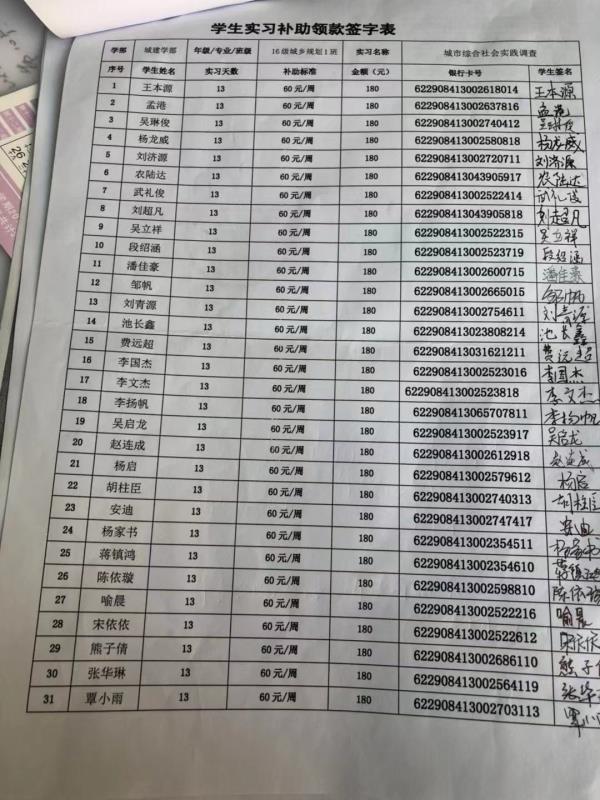 学生实习补助领款签字表
学部 城建学部 年级/专业/班级 16级城乡规划1班 实习名称 城市综合社会实践调查
序号 学生姓名 实习天数 补助标准 金额（元） 银行卡号 学生签名
1 王本源 13 60元/周 180 622908413002618014 王本源
2 孟港 13 60元/周 180 622908413002637816 孟港
3 吴琳俊 13 60元/周 180 622908413002740412 吴琳俊
4 杨龙威 13 60元/周 180 622908413002580818 杨龙威
5 刘济源 13 60元/周 180 622908413002720711 刘济源
6 农陆达 13 60元/周 180 622908413043905917 农陆达
7 武礼俊 13 60元/周 180 622908413002522414 武礼俊
8 刘超凡 13 60元/周 180 622908413043905818 刘超凡
9 吴立祥 13 60元/周 180 622908413002522315 吴立祥
10 段绍涵 13 60元/周 180 622908413002523719 段绍涵
11 潘佳豪 13 60元/周 180 622908413002600715 潘佳豪
12 邹帆 13 60元/周 180 622908413002665015 邹帆
13 刘青源 13 60元/周 180 622908413002754611 刘青源
14 池长鑫 13 60元/周 180 622908413023808214 池长鑫
15 费远超 13 60元/周 180 622908413031621211 费远超
16 李国杰 13 60元/周 180 622908413002523016 李国杰
17 李文杰 13 60元/周 180 622908413002523818 李文杰
18 李扬帆 13 60元/周 180 622908413065707811 李扬帆
19 吴启龙 13 60元/周 180 622908413002523917 吴启龙
20 赵连成 13 60元/周 180 622908413002612918 赵连成
21 杨启 13 60元/周 180 622908413002579612 杨启
22 胡柱臣 13 60元/周 180 622908413002740313 胡柱臣
23 安迪 13 60元/周 180 622908413002747417 安迪
24 杨家书 13 60元/周 180 622908413002354511 杨家书
25 蒋镇鸿 13 60元/周 180 622908413002354610 蒋镇鸿
26 陈依璇 13 60元/周 180 622908413002598810 陈依璇
27 喻晨 13 60元/周 180 622908413002522216 喻晨
28 宋依依 13 60元/周 180 622908413002522612 宋依依
29 熊子倩 13 60元/周 180 622908413002686110 熊子
30 张华琳 13 60元/周 180 622908413002564119 张华
31 覃小雨 13 60元/周 180 622908413002703113 覃小